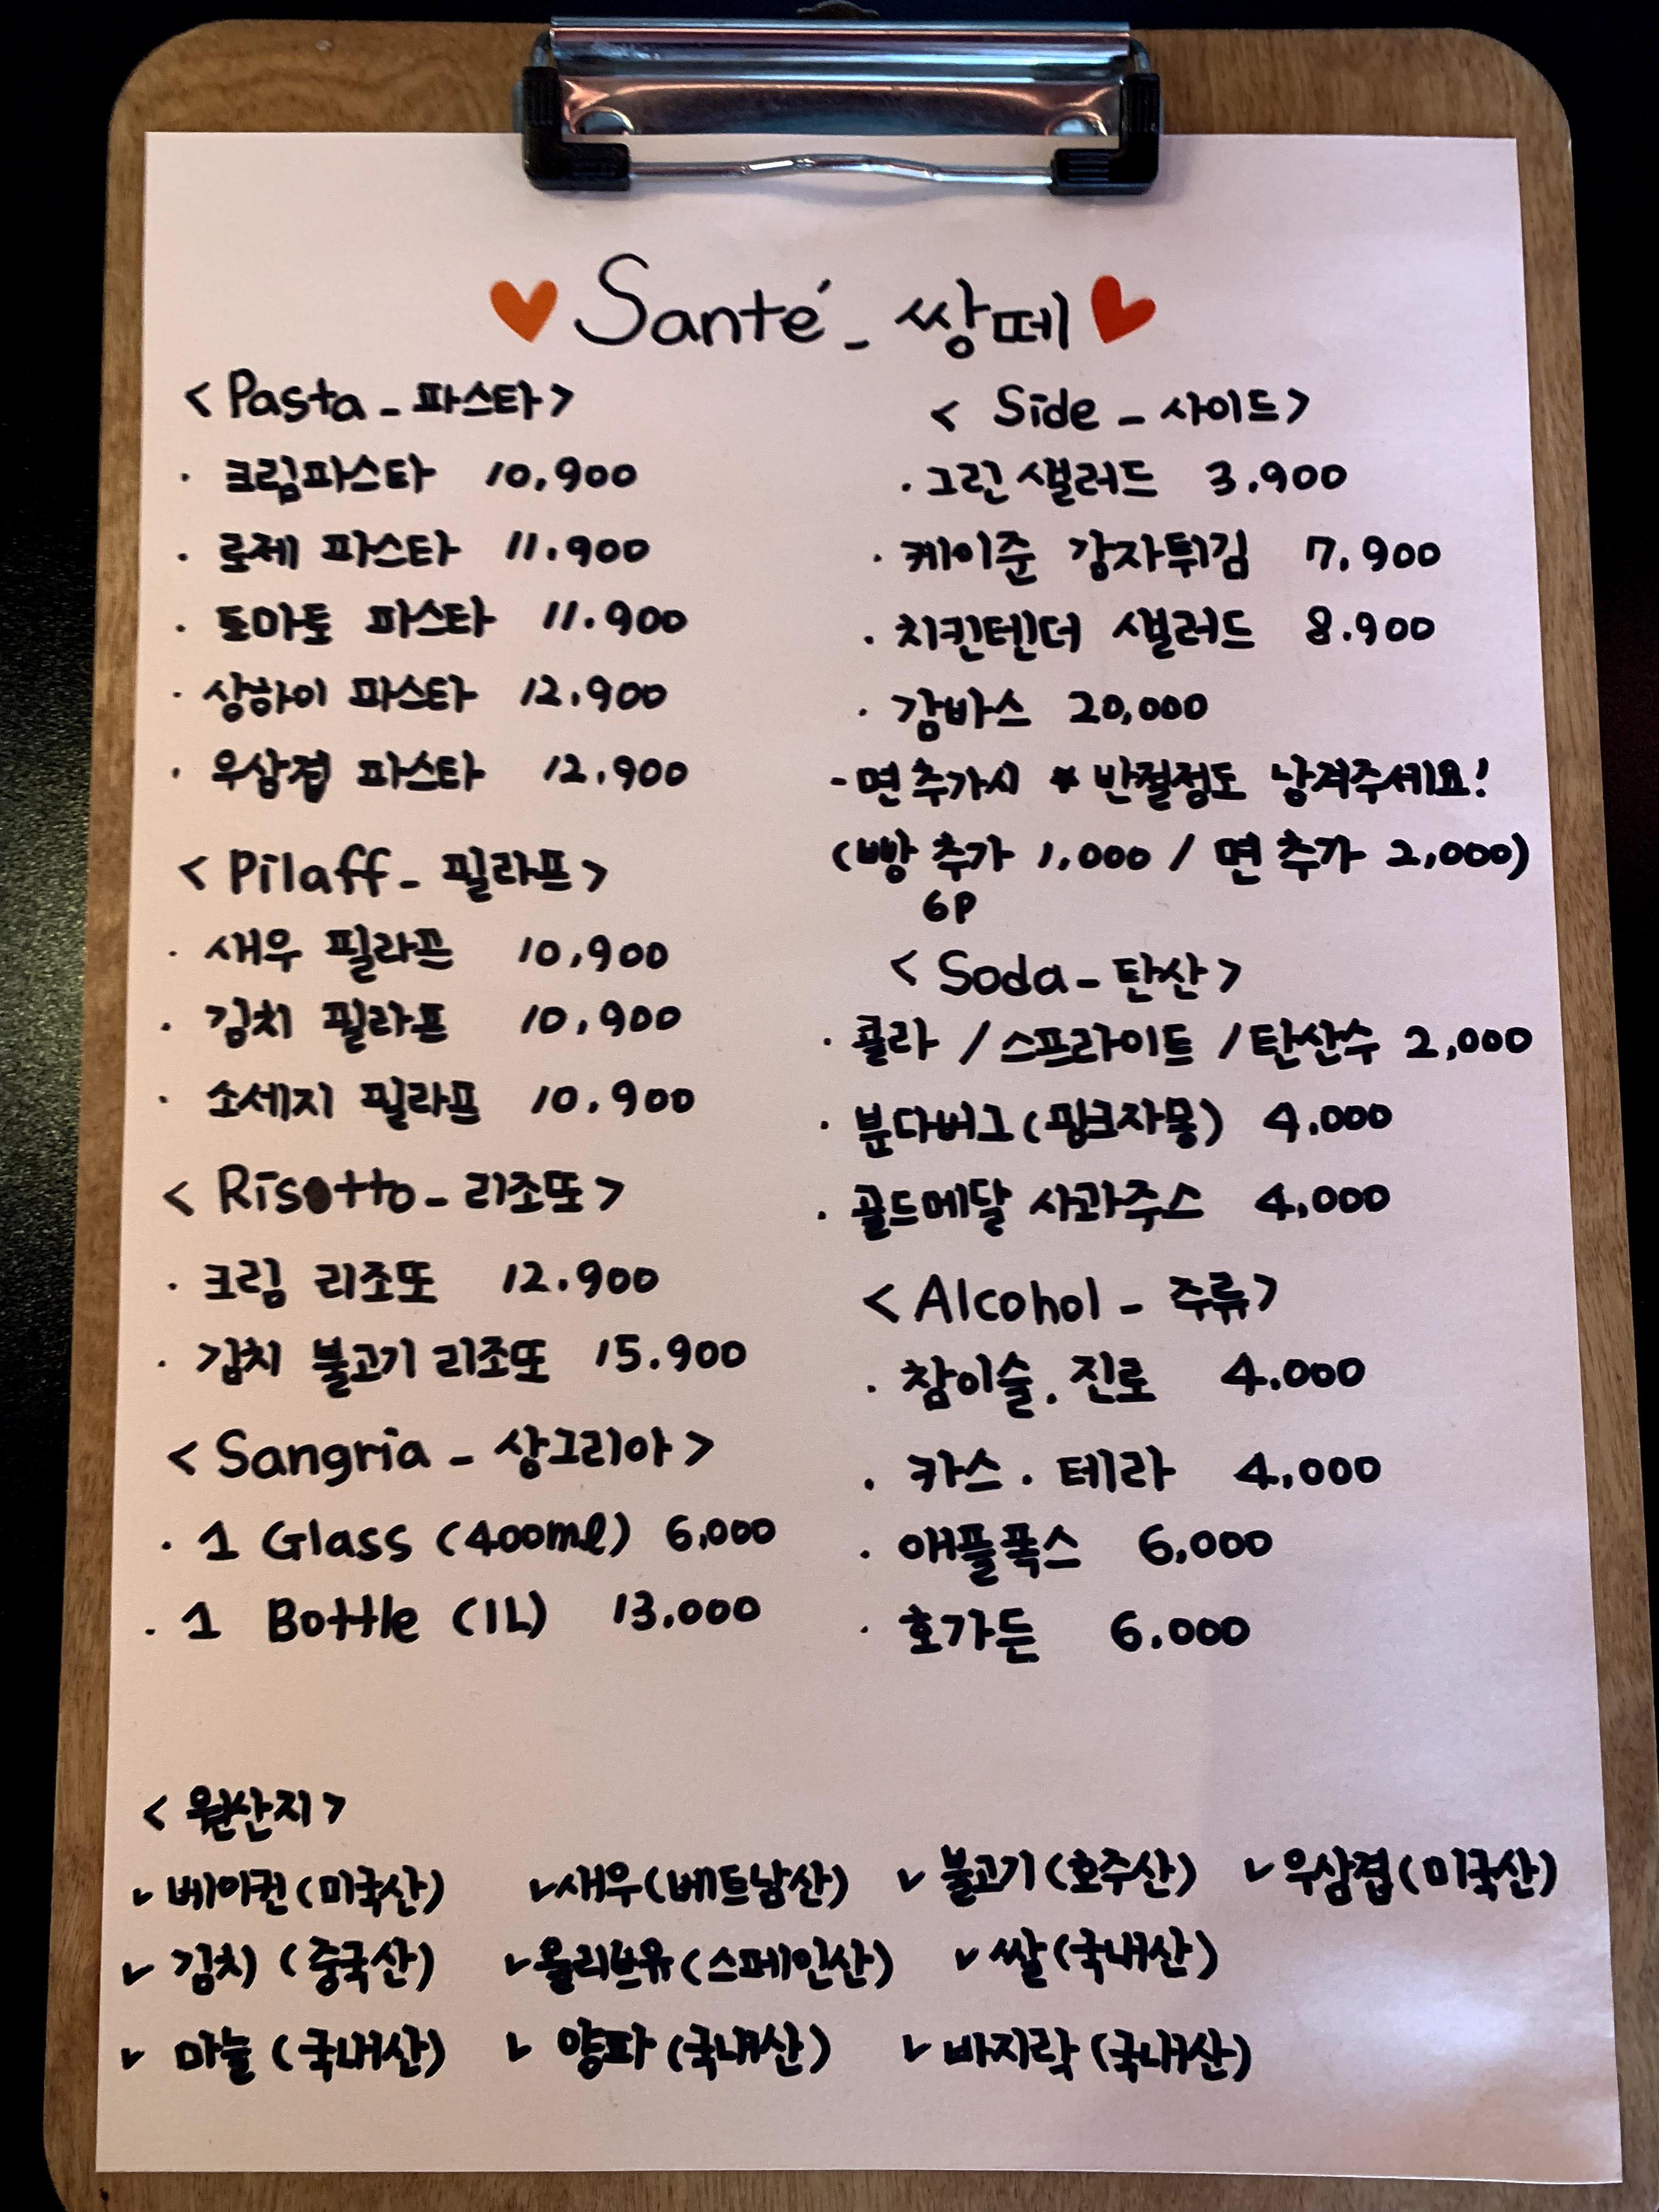 Santé_쌍떼
<Pasta_파스타>
· 크림파스타 10,900
· 로제 파스타 11.900
· 토마토 파스타 11.900
· 상하이 파스타 12.900
· 우삼겹 파스타 12.900
<Pilaff_필라프>
· 새우 필라프 10,900
· 김치 필라프 10,900
· 소세지 필라프 10.900
<Risotto_리조또>
· 크림 리조또 12.900
· 김치 불고기 리조또 15.900
<Sangria_상그리아>
· 1 Glass (400ml) 6,000
· 1 Bottle (1L) 13.000
<Side_사이드>
· 그린 샐러드 3.900
· 케이준 감자튀김 7,900
· 치킨텐더 샐러드 8.900
· 감바스 20,000
- 면 추가시 * 반절정도 남겨주세요!
(빵 추가 1,000 / 면 추가 2,000)
6P
<Soda_탄산>
· 콜라 / 스프라이트 / 탄산수 2,000
· 분다버그(핑크자몽) 4.000
· 골드메달 사과주스 4,000
<Alcohol_주류>
· 참이슬. 진로 4.000
· 카스. 테라 4,000
· 애플폭스 6,000
· 호가든 6.000
<원산지>
✓ 베이컨(미국산) ✓ 새우(베트남산) ✓ 불고기(호주산) ✓ 우삼겹(미국산)
✓ 김치 (중국산) ✓ 올리브유(스페인산) ✓ 쌀(국내산)
✓ 마늘 (국내산) ✓ 양파(국내산) ✓ 바지락(국내산)